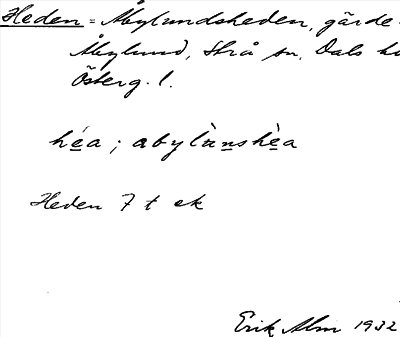 Heden = Åbylundsheden, gärde
Åbylund, Strå sn, Dals
Österg. l.
héa ; abylùnshèa
Heden 7 t ek
Erik Alm 1932